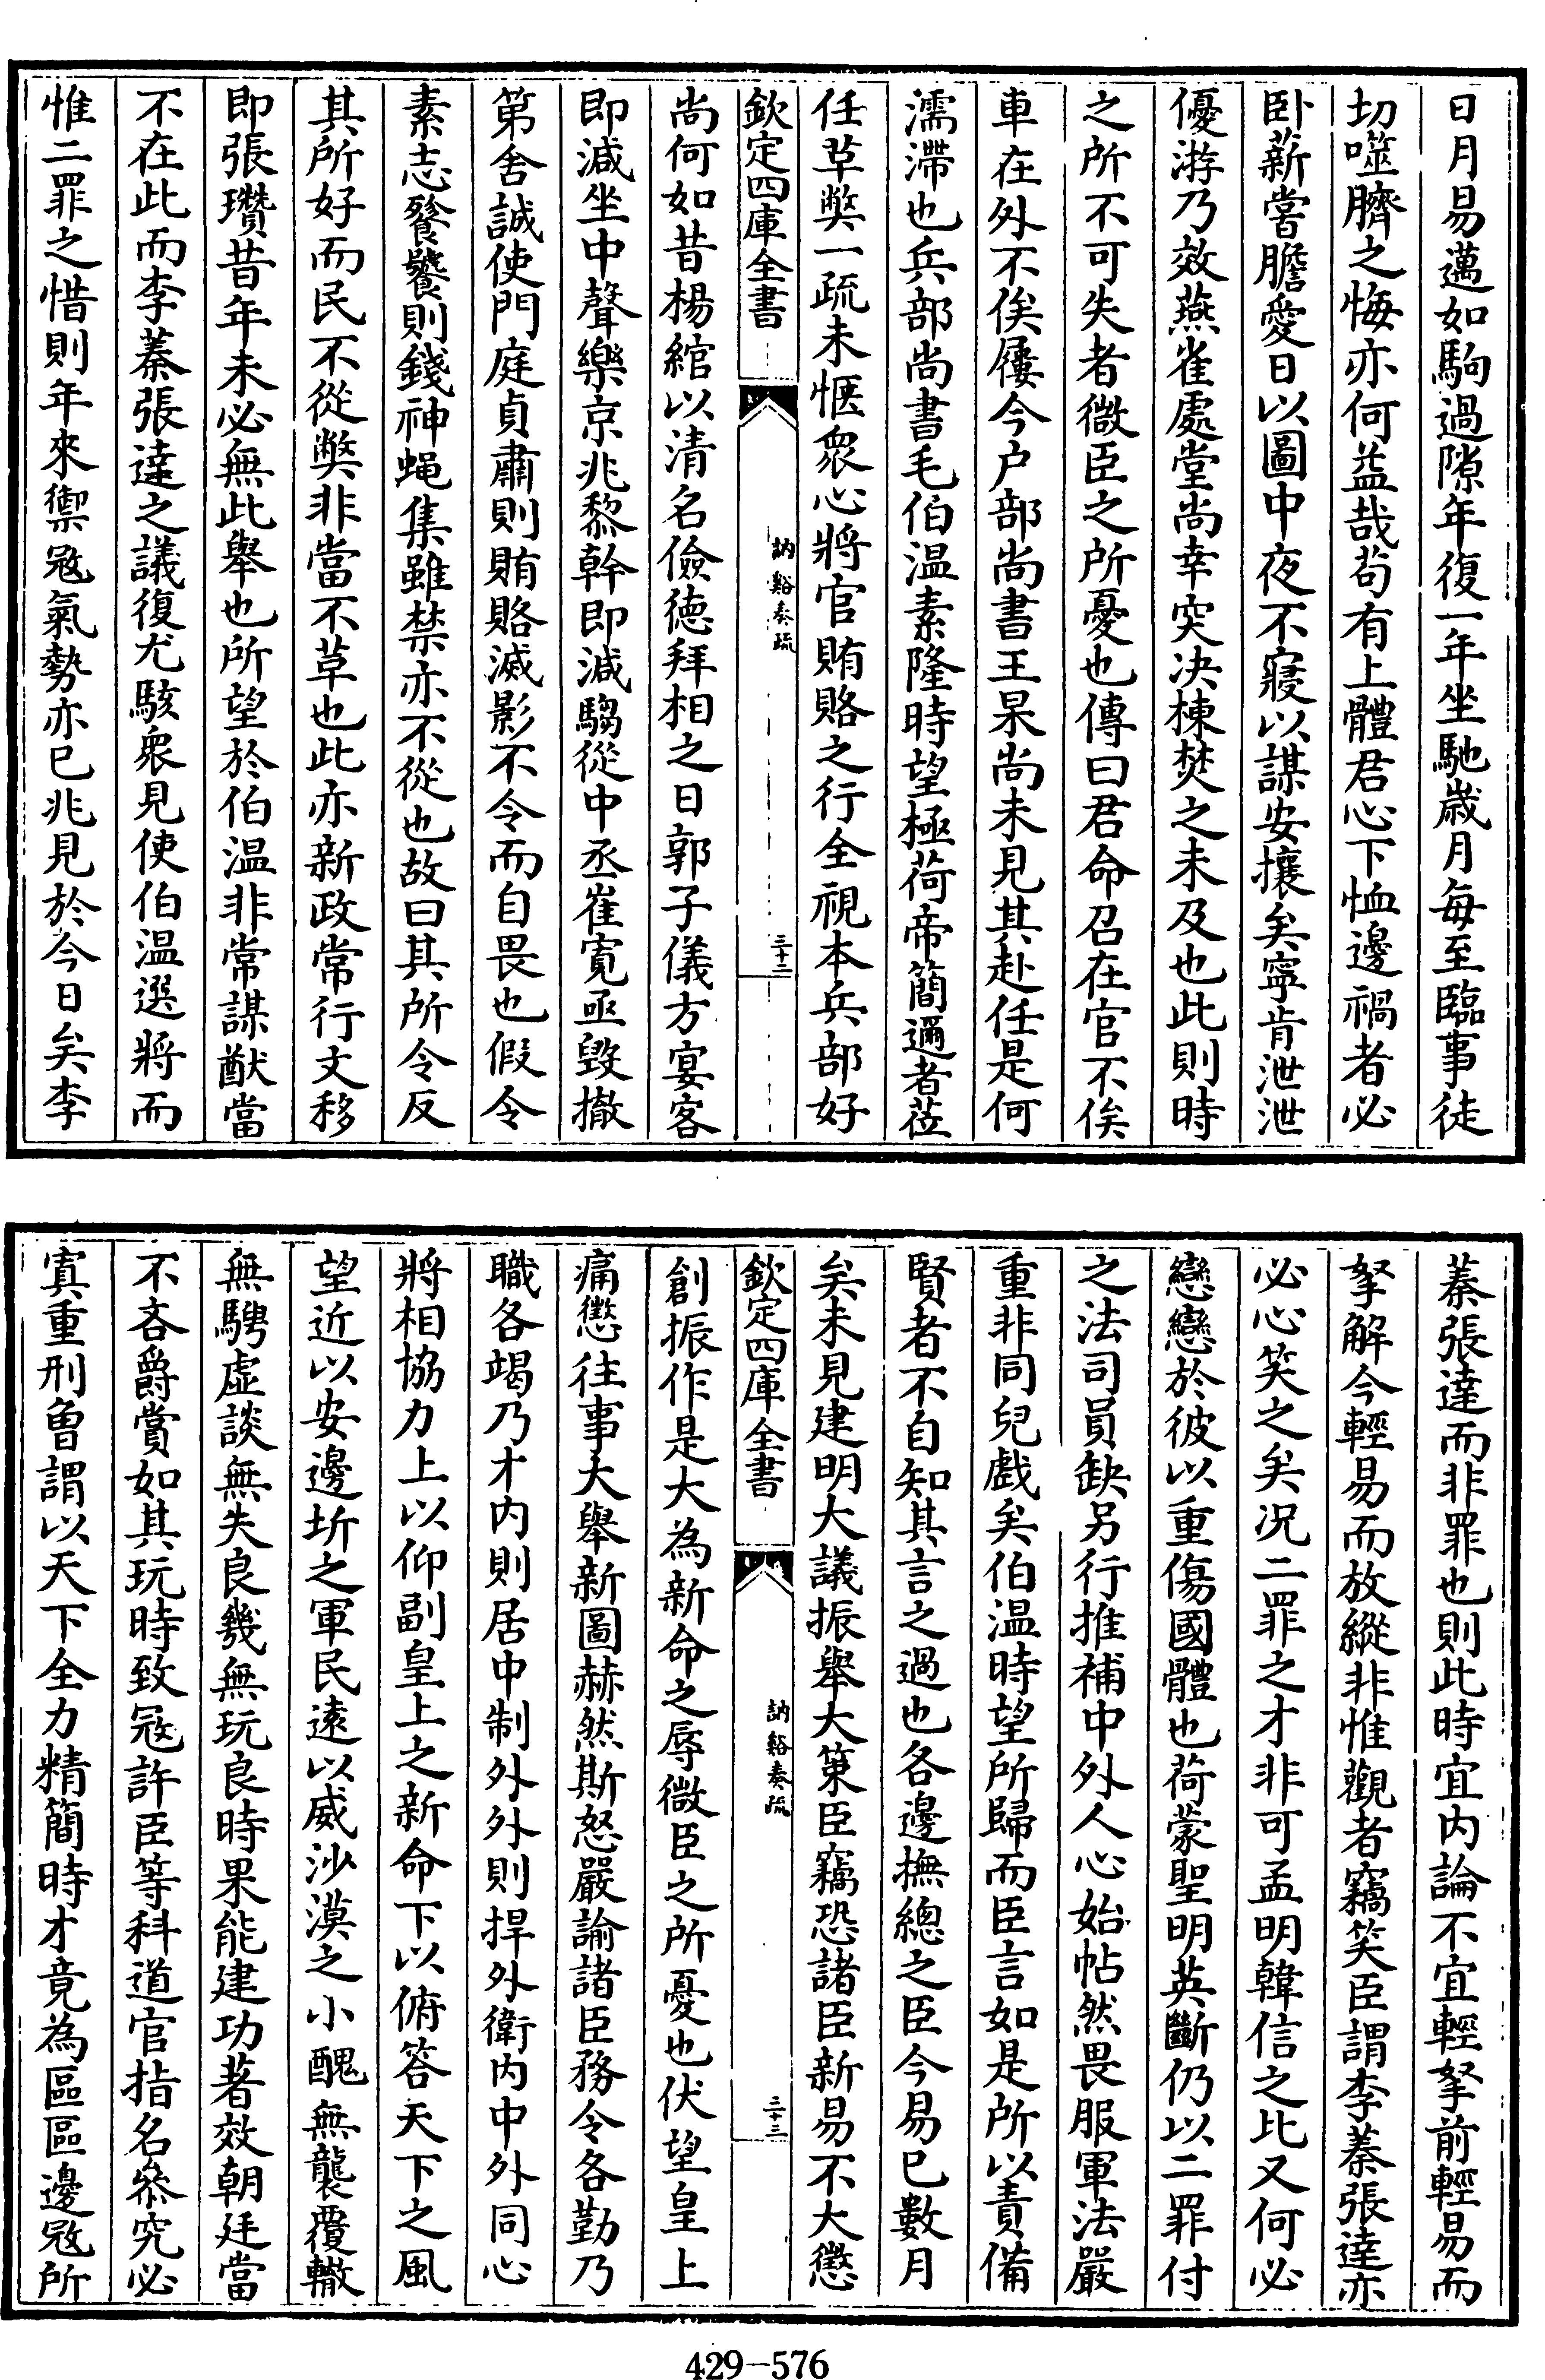 日月易邁如駒過隙年復一年坐馳歲月每至臨事徒
切噬臍之悔亦何益哉苟有上體君心下恤邊禍者必
卧薪嘗膽愛日以圖中夜不寢以謀安攘矣寧肯泄泄
優游乃效燕雀處堂尚幸突決棟焚之未及也此則時
之所不可失者微臣之所憂也傳曰君命召在官不俟
車在外不俟屨今户部尚書王杲尚未見其赴任是何
濡滯也兵部尚書毛伯温素隆時望極荷帝簡邇者莅
任草弊一疏未愜衆心將官賄賂之行全視本兵部好
欽定四庫全書
訥谿奏疏
三十二
尚何如昔楊綰以清名儉德拜相之日郭子儀方宴客
即減坐中聲樂京兆黎幹即減騶從中丞崔寛亟毀撤
第舍誠使門庭貞肅則賄賂滅影不令而自畏也假令
素志饕餮則錢神蝇集雖禁亦不從也故曰其所令反
其所好而民不從弊非當不草也此亦新政常行文移
即張瓚昔年未必無此舉也所望於伯温非常謀猷當
不在此而李蓁張達之議復尤駭衆見使伯温選將而
惟二罪之惜則年來禦冦氣勢亦已兆見於今日矣李
蓁張達而非罪也則此時宜内論不宜輕拏前輕易而
拏解今輕易而放縱非惟觀者竊笑臣謂李蓁張達亦
必心笑之矣况二罪之才非可孟明韓信之比又何必
戀戀於彼以重傷國體也荷蒙聖明英斷仍以二罪付
之法司員缺另行推補中外人心始帖然畏服軍法嚴
重非同兒戲矣伯温時望所歸而臣言如是所以責備
賢者不自知其言之過也各邊撫總之臣今易已數月
矣未見建明大議振舉大策臣竊恐諸臣新易不大懲
欽定四庫全書
訥谿奏疏
三十三
創振作是大為新命之辱微臣之所憂也伏望皇上
痛懲往事大舉新圖赫然斯怒嚴諭諸臣務令各勤乃
職各竭乃才内則居中制外外則捍外衛内中外同心
將相協力上以仰副皇上之新命下以俯答天下之風
望近以安邊圻之軍民遠以威沙漠之小醜無襲覆轍
無騁虚談無失良幾無玩良時果能建功著效朝廷當
不吝爵賞如其玩時致冦許臣等科道官指名叅究必
寘重刑曾謂以天下全力精簡時才竟為區區邊冦所
429-576